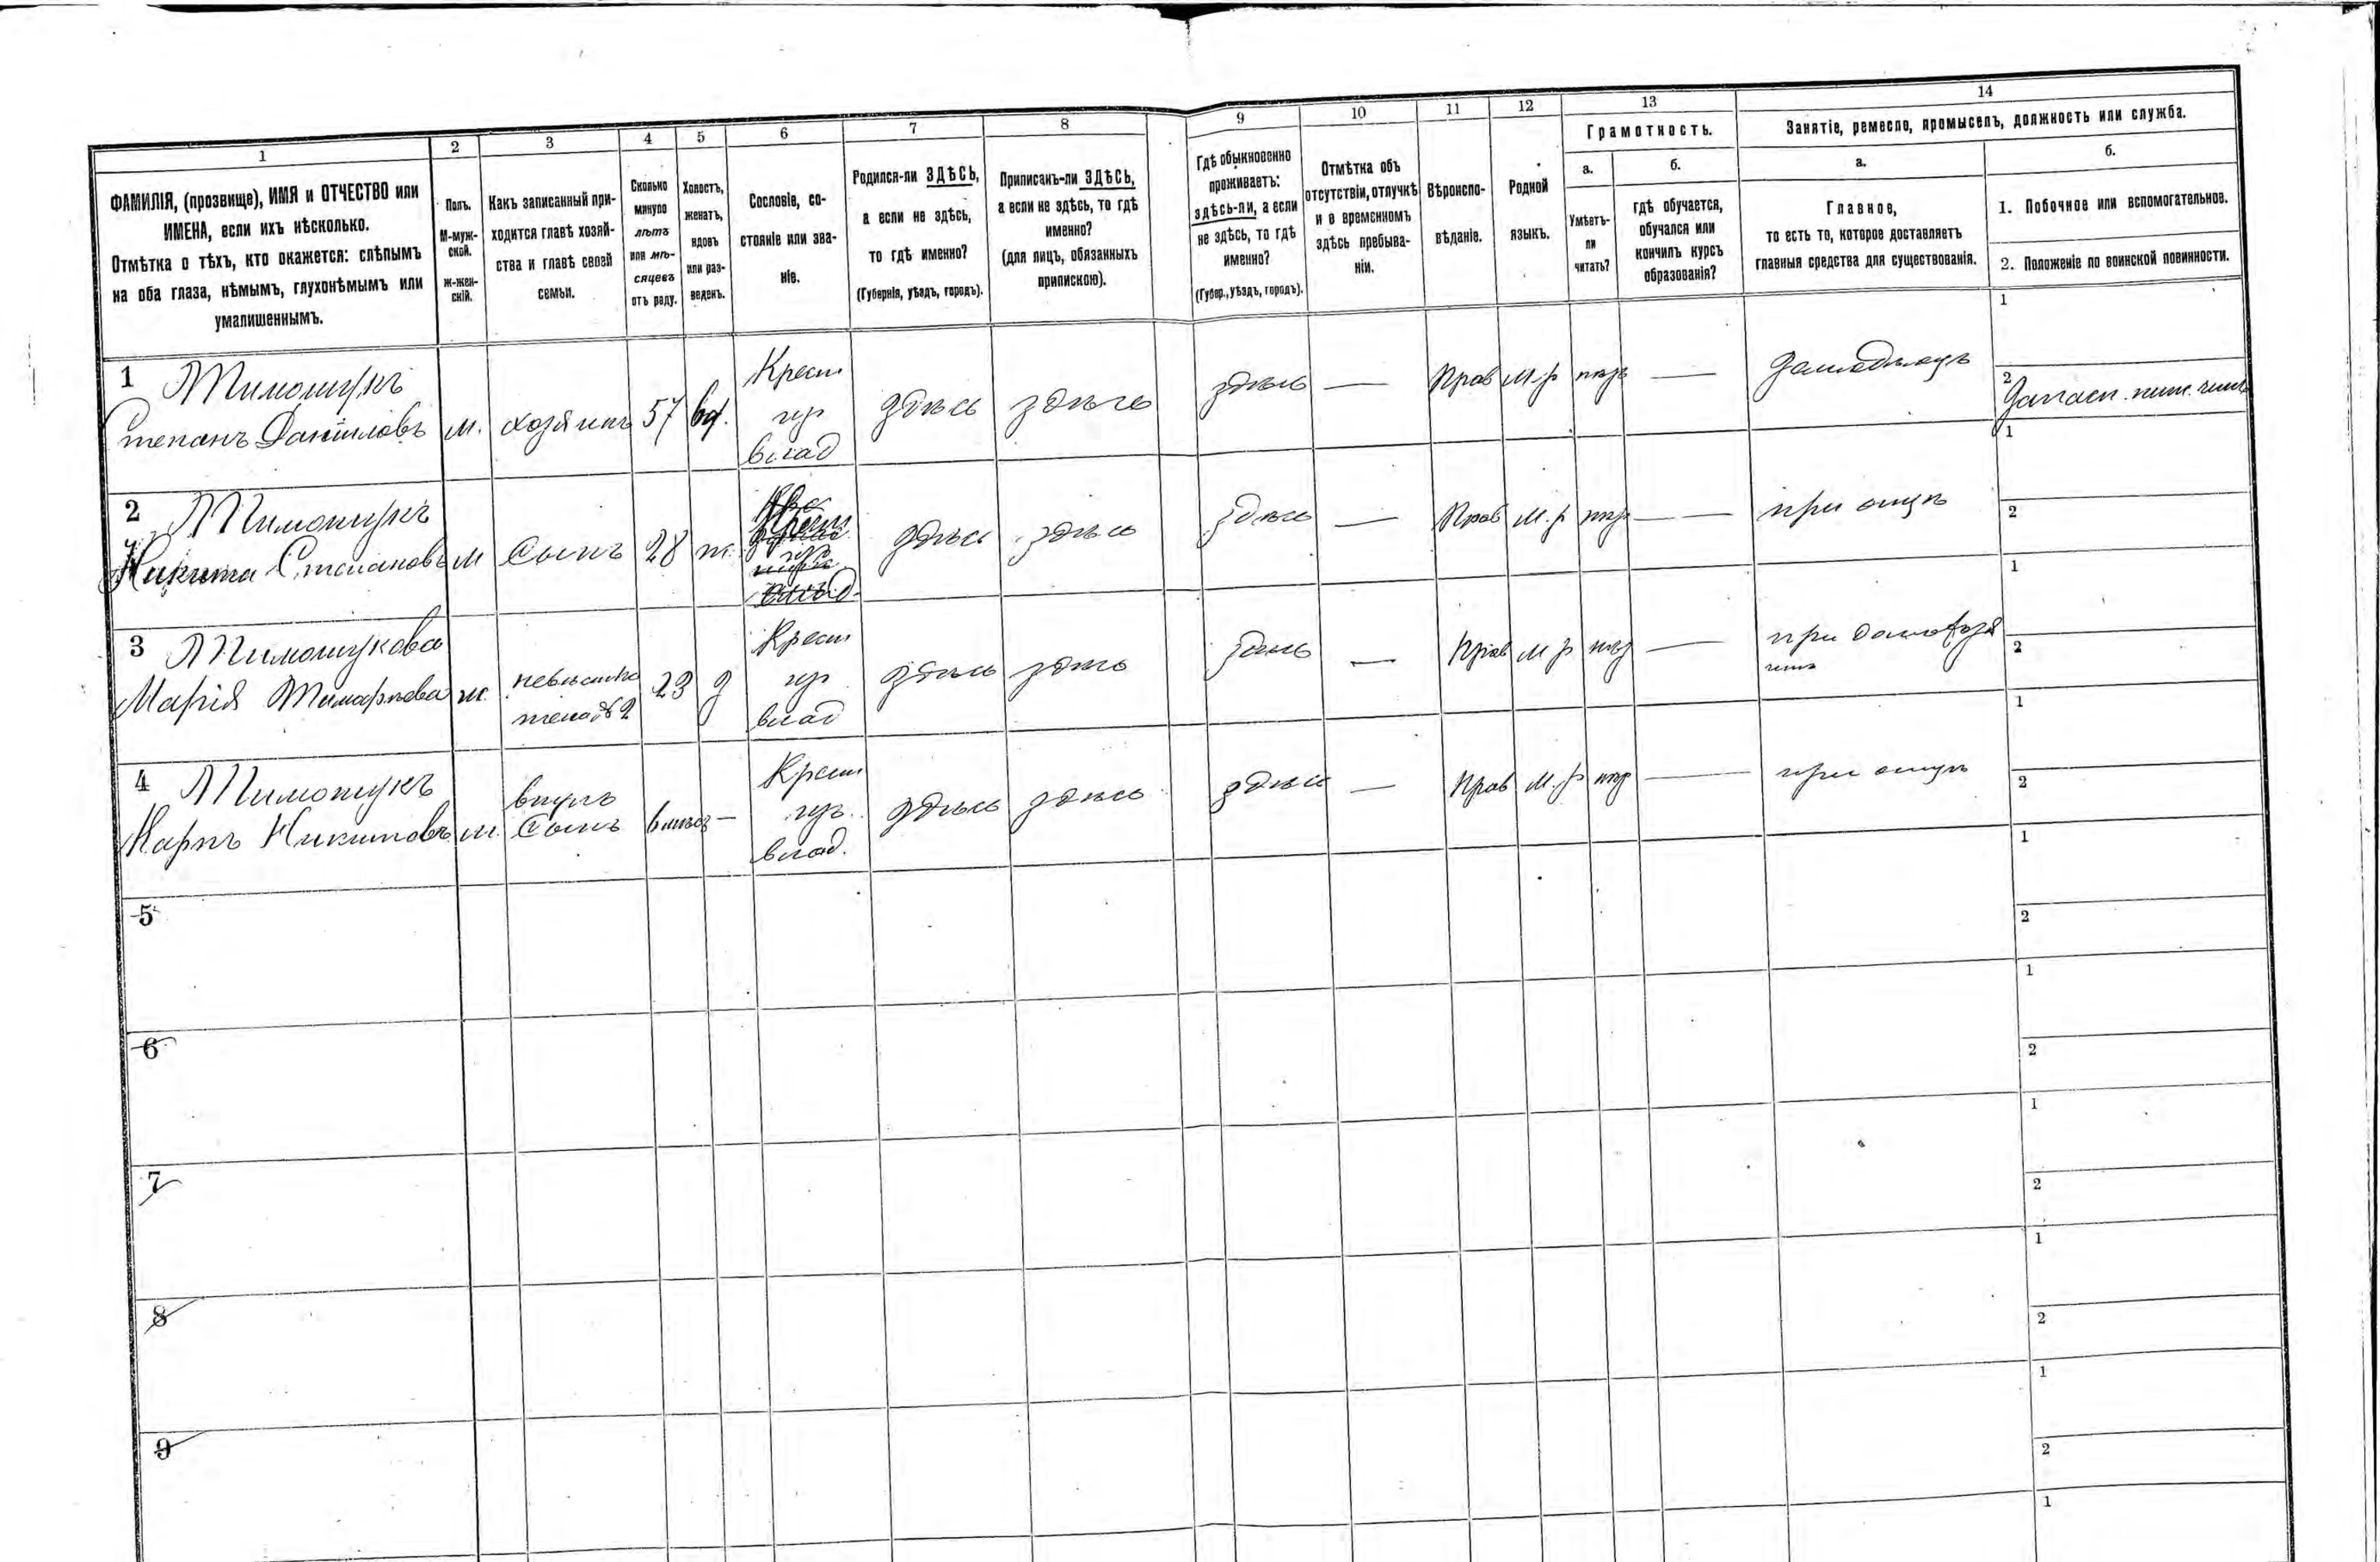 1 2 3 4 5 6 7 8 9 10 11 12 13 14
ФАМИЛІЯ, (прозвище), ИМЯ и ОТЧЕСТВО или
ИМЕНА, если ихъ нѣсколько.
Отмѣтка о тѣхъ, кто окажется: слѣпымъ
на оба глаза, нѣмымъ, глухонѣмымъ или
умалишеннымъ.
Полъ.
М-муж-
ской.
ж-жен-
скій.
Какъ записанный при-
ходится главѣ хозяй-
ства и главѣ своей
семьи.
Сколько
минуло
лѣтъ
или мѣ-
сяцевъ
отъ роду.
Холостъ,
женатъ,
вдовъ
или раз-
веденъ.
Сословіе, со-
стояніе или зва-
ніе.
Родился-ли ЗДѢСЬ,
а если не здѣсь,
то гдѣ именно?
(Губернія, уѣздъ, городъ).
Приписанъ-ли ЗДѢСЬ,
а если не здѣсь, то гдѣ
именно?
(для лицъ, обязанныхъ
припискою).
Гдѣ обыкновенно
проживаетъ:
здѣсь-ли, а если
не здѣсь, то гдѣ
именно?
(Губер., уѣздъ, городъ).
Отмѣтка объ
отсутствіи, отлучкѣ
и о временномъ
здѣсь пребыва-
ніи.
Вѣроиспо-
вѣданіе.
Родной
языкъ.
Грамотность.
а.
Умѣетъ-
ли
читать?
б.
гдѣ обучается,
обучался или
кончилъ курсъ
образованія?
Занятіе, ремесло, промыселъ, должность или служба.
а.
Главное,
то есть то, которое доставляетъ
главныя средства для существованія.
б.
1. Побочное или вспомогательное.
2. Положеніе по воинской повинности.
1 Тимощукъ
Степанъ Даніиловъ м. хозяинъ 57 вд. Крест влад здѣсь здѣсь здѣсь — Прав М.р — 1
2
2 Тимощукъ
Никита Степановъ м сынъ 28 ж. здѣсь здѣсь здѣсь — Прав М.р — при отцѣ 1
2
3 Тимощукова
Марія ж. невѣстка
жена №2 23 з Крест влад здѣсь здѣсь здѣсь — Прав М р — при 1
2
4 Тимощукъ
Карпъ Никитовъ м. внукъ
сынъ — Крест влад. здѣсь здѣсь здѣсь — Прав М.р — при отцѣ 1
2
5 1
2
6 1
2
7 1
2
8 1
2
9 1
2
1